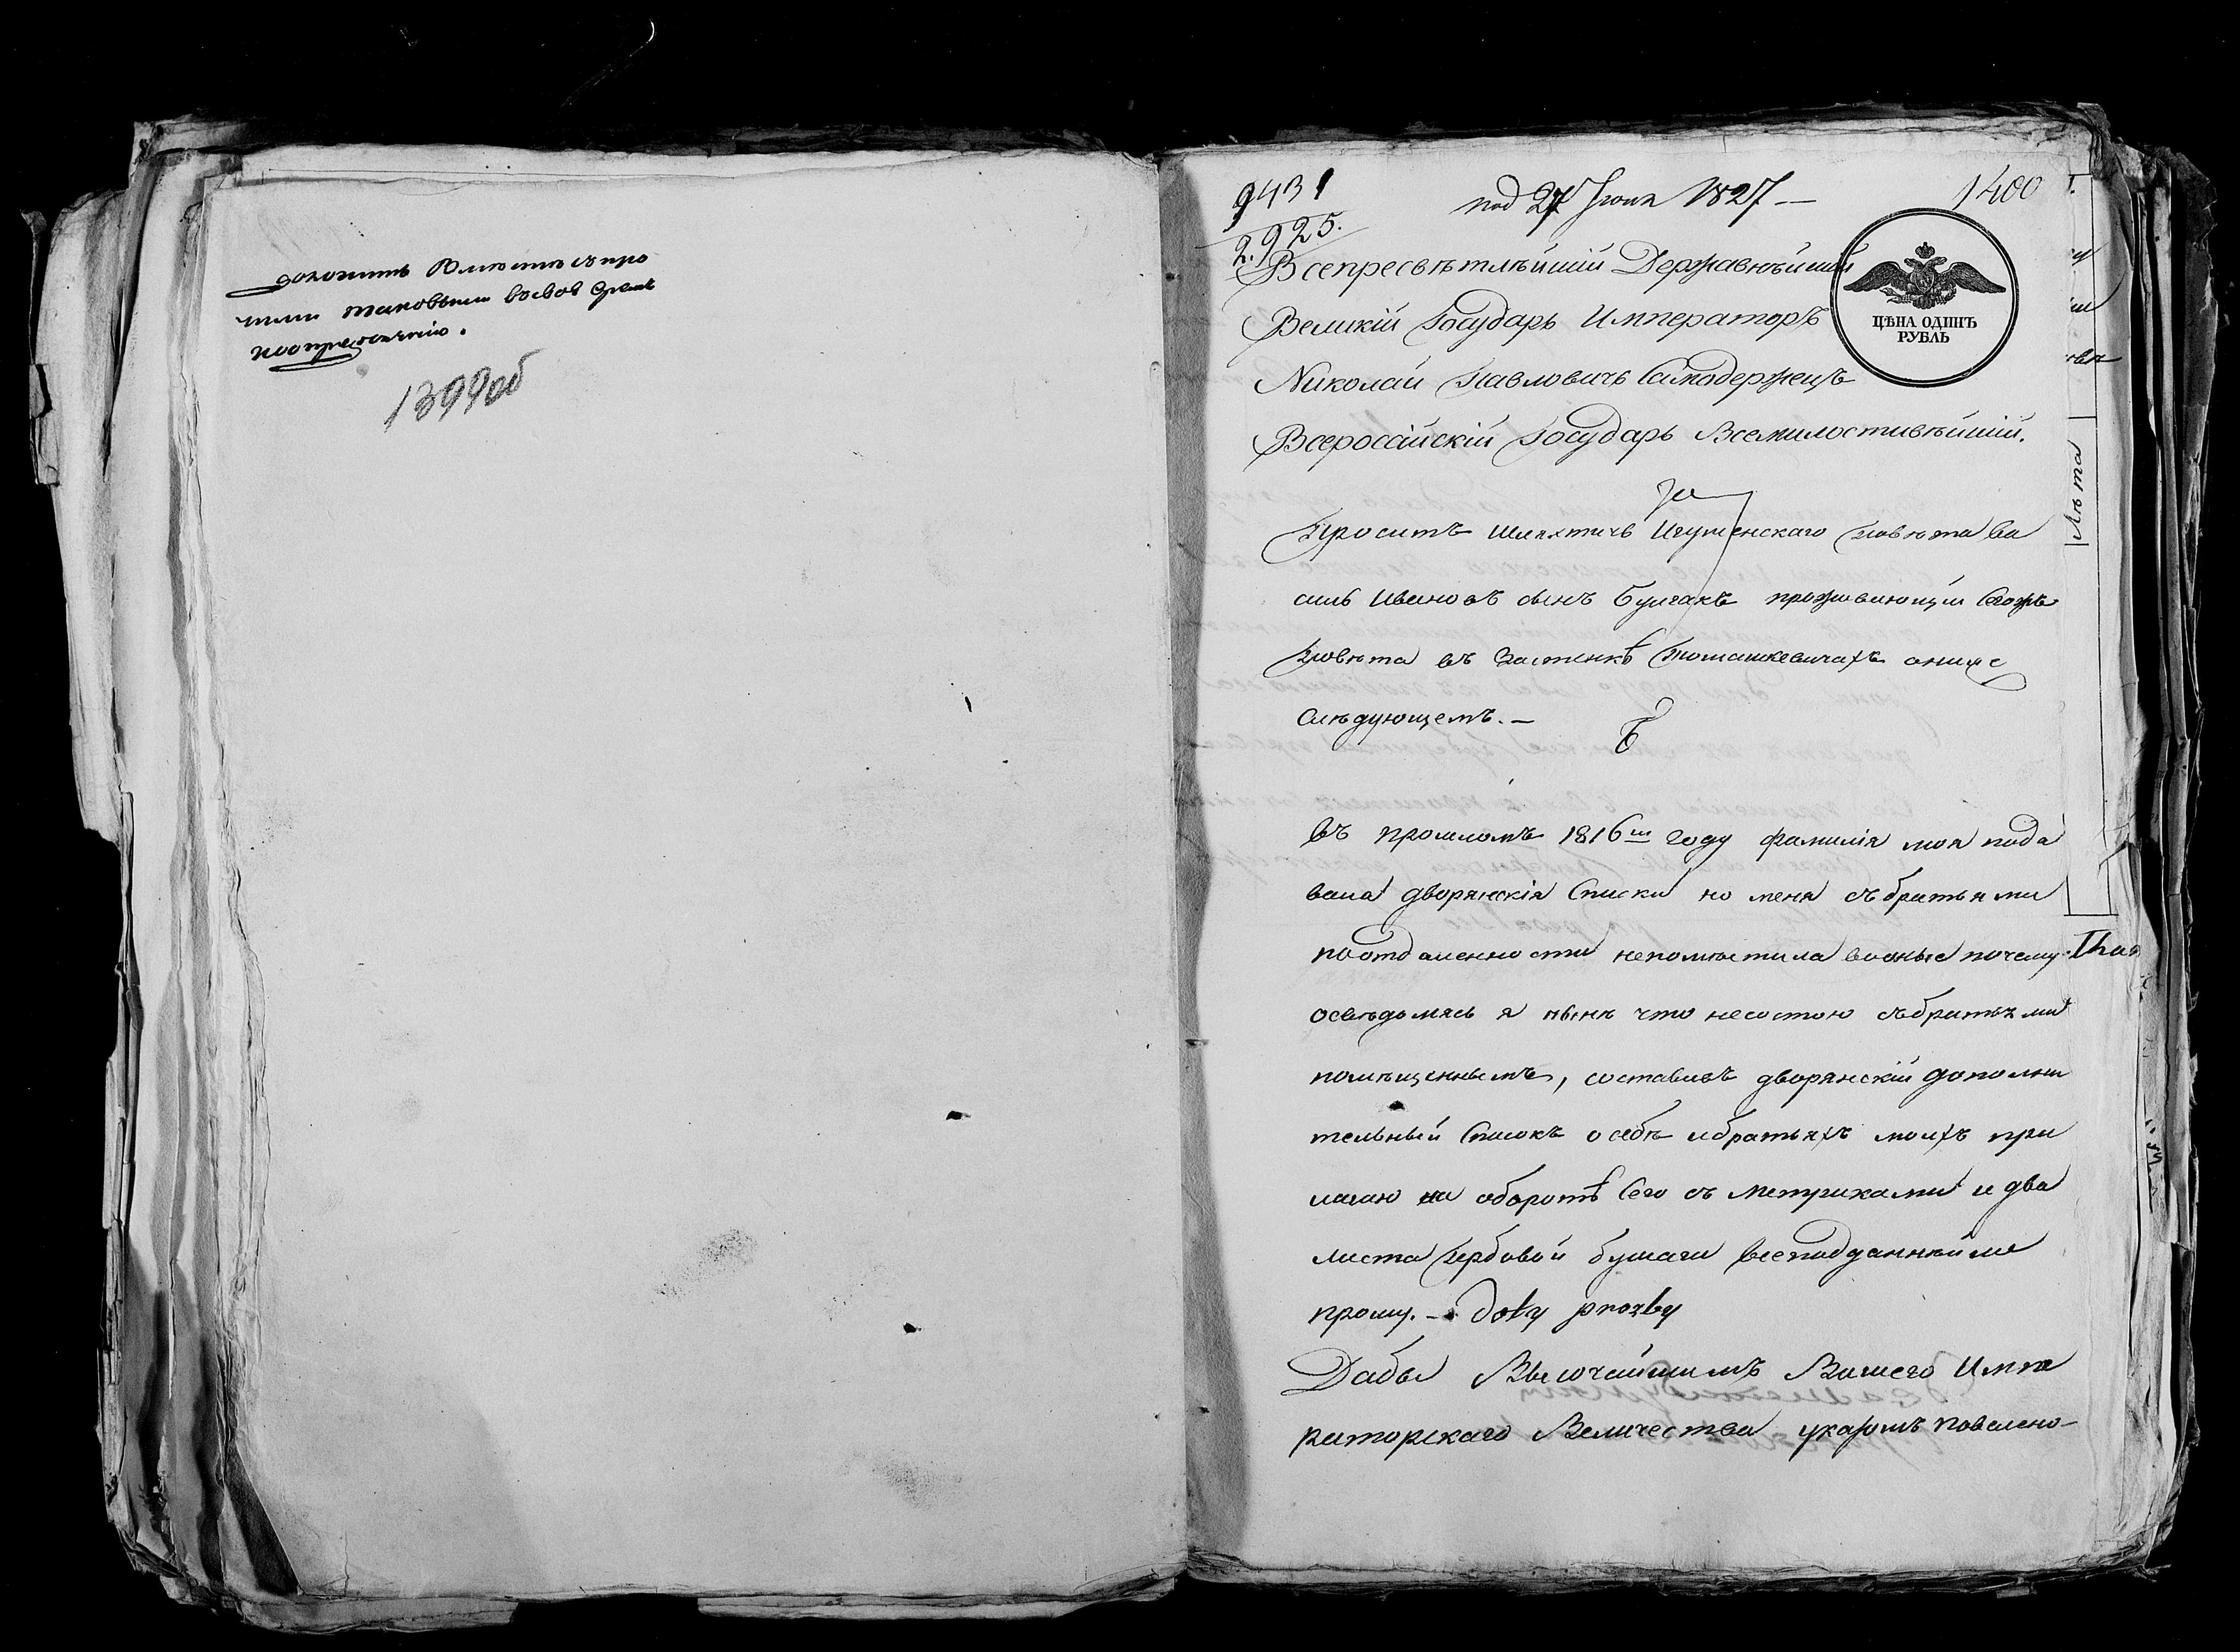 доложить вместе съ про
чими таковыми восвое время
поопределенію.
1399об
9431
2.925.
под 27 Іюня 1827 —
1400
ЦѢНА ОДИНЪ
РУБЛЬ
Всепресвѣтлѣйшій Державнѣйшій
Великій Государь Императоръ
Николай Павловичъ Самодержецъ
Всеросійскій Государь Всемилостивѣйшій.
Проситъ шляхтичъ Игуменскаго повѣта Ва
силь Ивановъ сынъ Булгакъ проживающій Сегожъ
повѣта въ Застенкѣ онижс
Слѣдующемъ. —
въ прошломъ 1816м году фамилія моя пода
вала дворянскія Списки но меня съ братьями
поотдаленности непомѣстила вооные почему
освѣдомясь я нынѣ что несостою събратьями
помѣщеннымъ, составивъ дворянскій дополни
тельный Списокъ о себѣ ибратьяхъ моихъ при
лагаю на оборотѣ Сего съ метриками и два
листа гербовой бумаги всеподданнѣйше
прошу. — doty prozby
Дабы Высочайшимъ Вашего Импе
раторскаго Величества указомъ повелено
лѣта